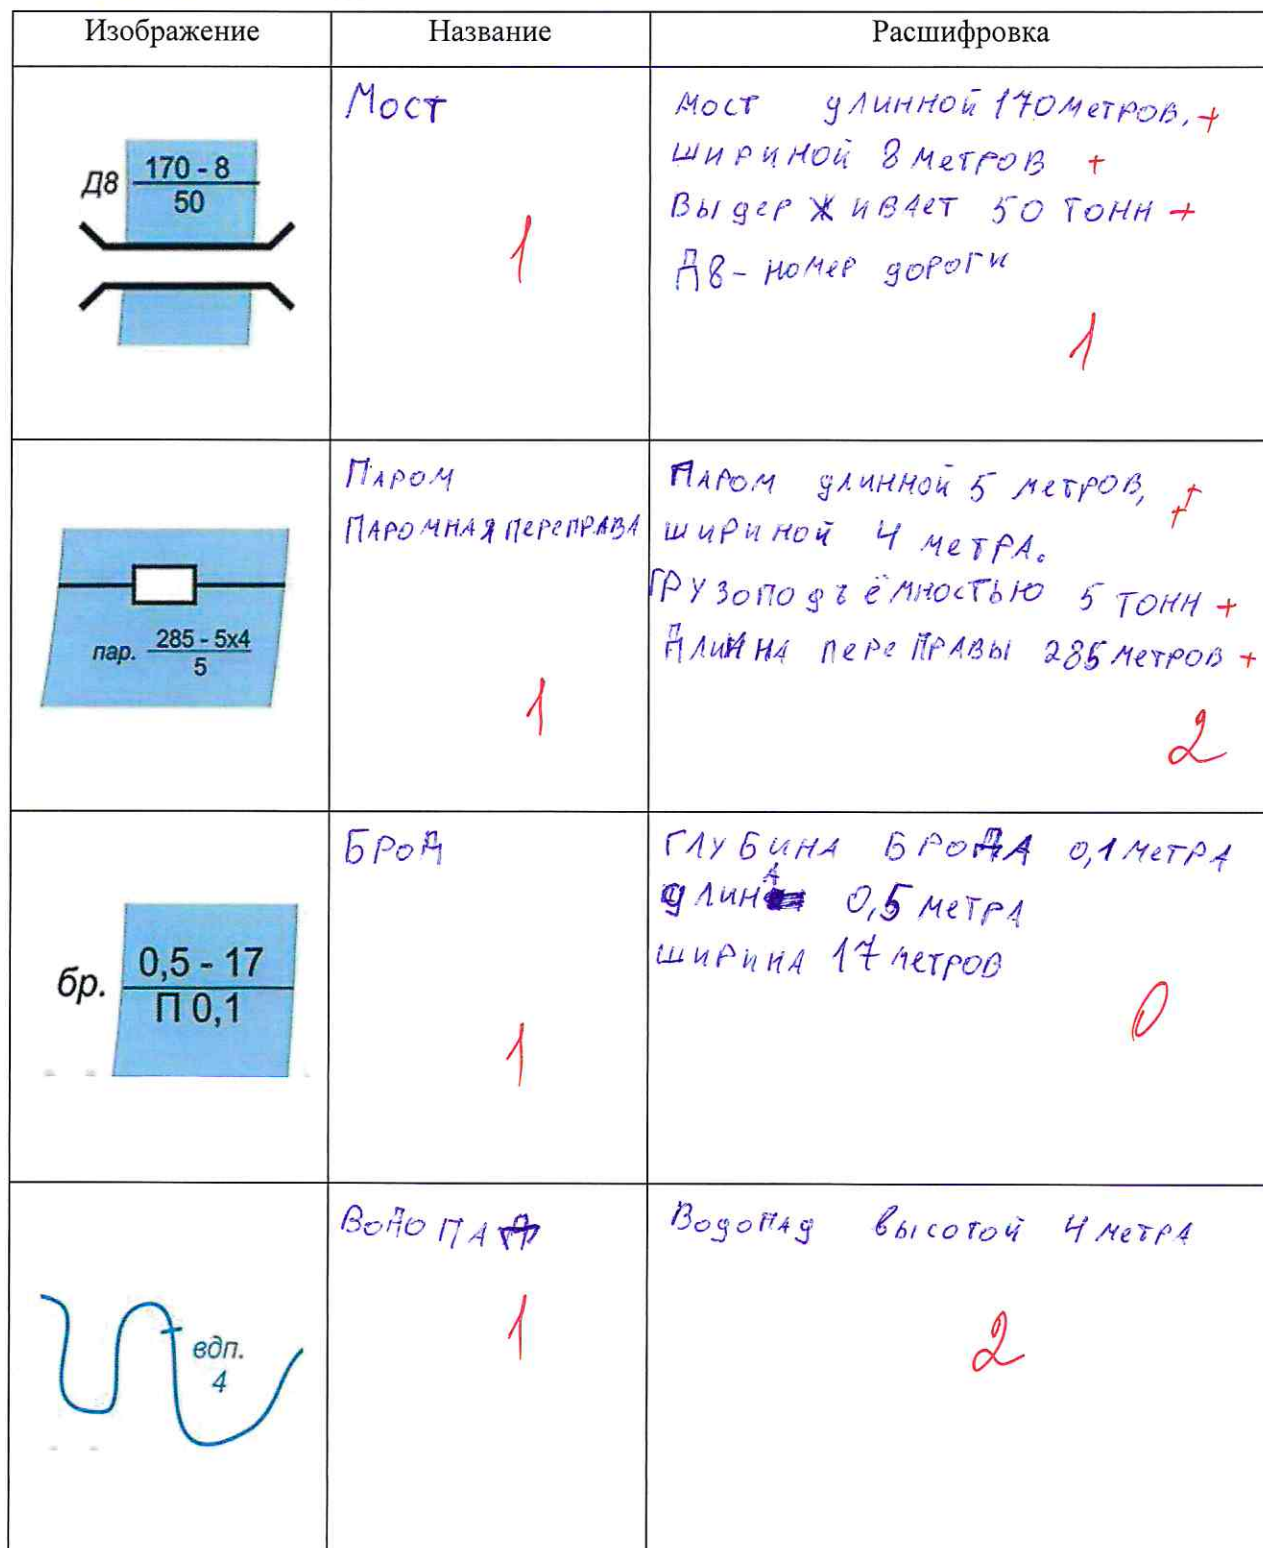 Изображение
Название
Расшифровка
Д8 170 - 8
50
Мост
1
Мост длинной 170 метров, +
шириной 8 метров +
Выдерживает 50 тонн +
Д8 - номер дороги
1
пар. 285 - 5x4
5
Паром
Паромная переправа
1
Паром длинной 5 метров, +
шириной 4 метра. +
грузоподъёмностью 5 тонн +
Длинна переправы 285 метров +
2
бр. 0,5 - 17
П 0,1
Брод
1
Глубина брода 0,1 метра
длина 0,5 метра
ширина 17 метров
0
вдп.
4
Водопад
1
Водопад высотой 4 метра
2